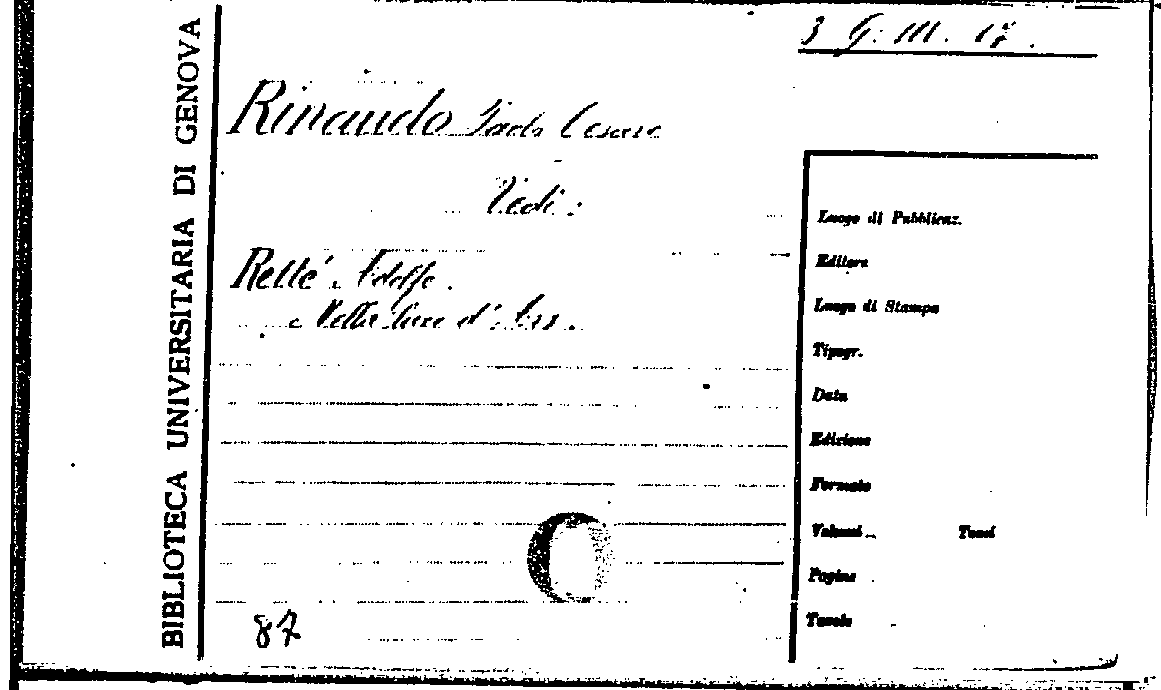 BIBLIOTECA UNIVERSITARIA DI GENOVA
3 G. III. 17.
Rinaudo Paolo Cesare
Vedi:
Retté Adolfo.
Nella luce d'Ars.
Luogo di Pubblicaz.
Editore
Luogo di Stampa
Tipogr.
Data
Edizione
Formato
Volumi Tomi
Pagine
Tavole
87